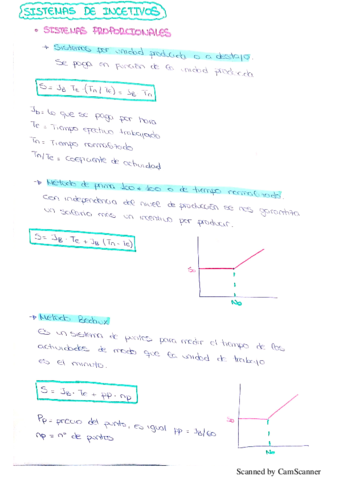 SISTEMAS DE INCETIVOS
• SISTEMAS PROPORCIONALES
→ Sistemas por unidad producida o a destajo
Se paga en función de la unidad producida
S = JB Te · (Tn / Te) = JB Tn
JB = lo que se paga por hora
Te = Tiempo efectivo trabajado
Tn = Tiempo normalizado
Tn/Te = coeficiente de actividad
→ Método de prima 100 x 100 o de tiempo normalizado
con independencia del nivel de producción se nos garantiza
un salario más un incentivo por producir.
S = JB · Te + JB (Tn - Te)
So
No
→ Método Bedaux
es un sistema de puntos para medir el tiempo de las
actividades de modo que la unidad de trabajo
es el minuto.
S = JB · Te + pp · np
Pp = precio del punto, es igual pp = JB/60
np = nº de puntos
So
No
Scanned by CamScanner